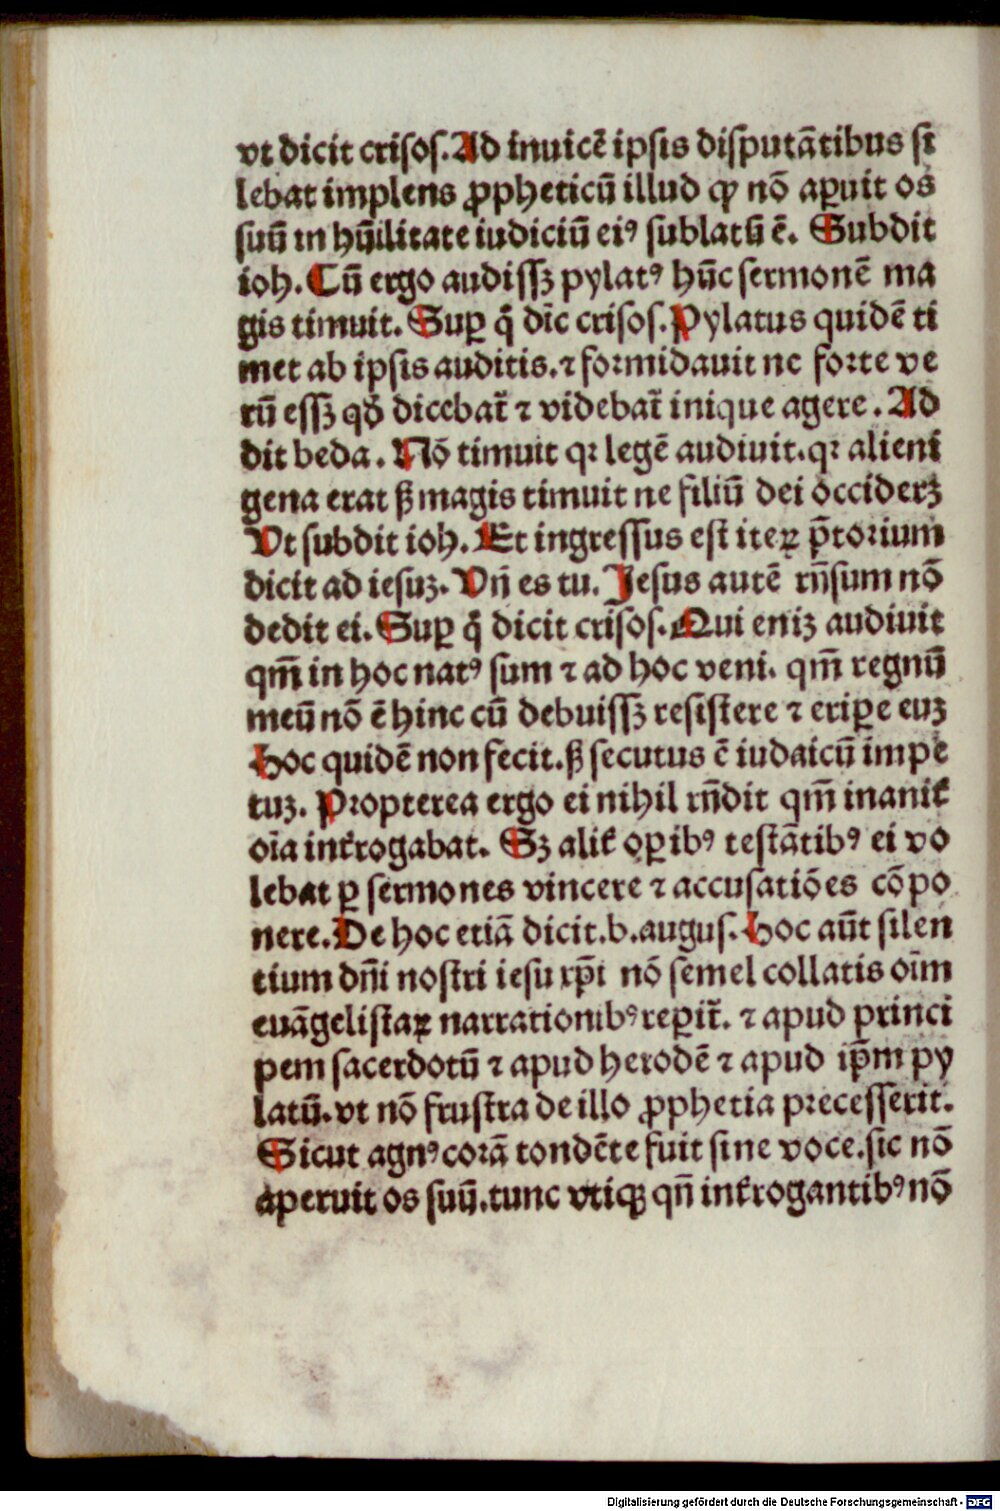 vt dicit crisos. Ad inuicē ipsis disputātibus si
lebat implens ꝓpheticū illud ꝙ nō aꝑuit os
suū in hūilitate iudiciū eiꝰ sublatū ē. Subdit
ioh. Cū ergo audissꝫ pylatꝰ hūc sermonē ma
gis timuit. Suꝑ q̄ dīc crisos. Pylatus quidē ti
met ab ipsis auditis. ⁊ formidauit ne forte ve
rū essꝫ qđ dicebat̄ ⁊ videbat̄ inique agere. Ad
dit beda. Nō timuit qꝛ legē audiuit. qꝛ alieni
gena erat ꝭß magis timuit ne filiū dei occiderꝫ
Vt subdit ioh. Et ingressus est iteꝝ p̄torium
dicit ad iesuꝫ. Vn̄ es tu. Jesus autē rn̄sum nō
dedit ei. Suꝑ q̄ dicit crisos. Qui eniꝫ audiuit
qm̄ in hoc natꝰ sum ⁊ ad hoc veni. qm̄ regnū
meū nō ē hinc cū debuissꝫ resistere ⁊ eriꝑe euꝫ
Hoc quidē non fecit. ß secutus ē iudaicū impe
tuꝫ. Propterea ergo ei nihil rn̄dit qm̄ inanit̄
oīa int̄rogabat. Sꝫ alit̄ oꝑibꝰ testātibꝰ ei vo
lebat ꝑ sermones vincere ⁊ accusatiōes cōpo
nere. De hoc etiā dicit. b. augus. Hoc aūt silen
tium dn̄i nostri iesu xp̄i nō semel collatis oīm
euāgelistaꝝ narrationibꝰ reꝑit̄. ⁊ apud princi
pem sacerdotū ⁊ apud herodē ⁊ apud ip̄m py
latū. vt nō frustra de illo ꝓphetia precesserit.
Sicut agnꝰ corā tondēte fuit sine voce. sic nō
aperuit os suū. tunc vtiqꝫ qn̄ int̄rogantibꝰ nō
Digitalisierung gefördert durch die Deutsche Forschungsgemeinschaft - DFG